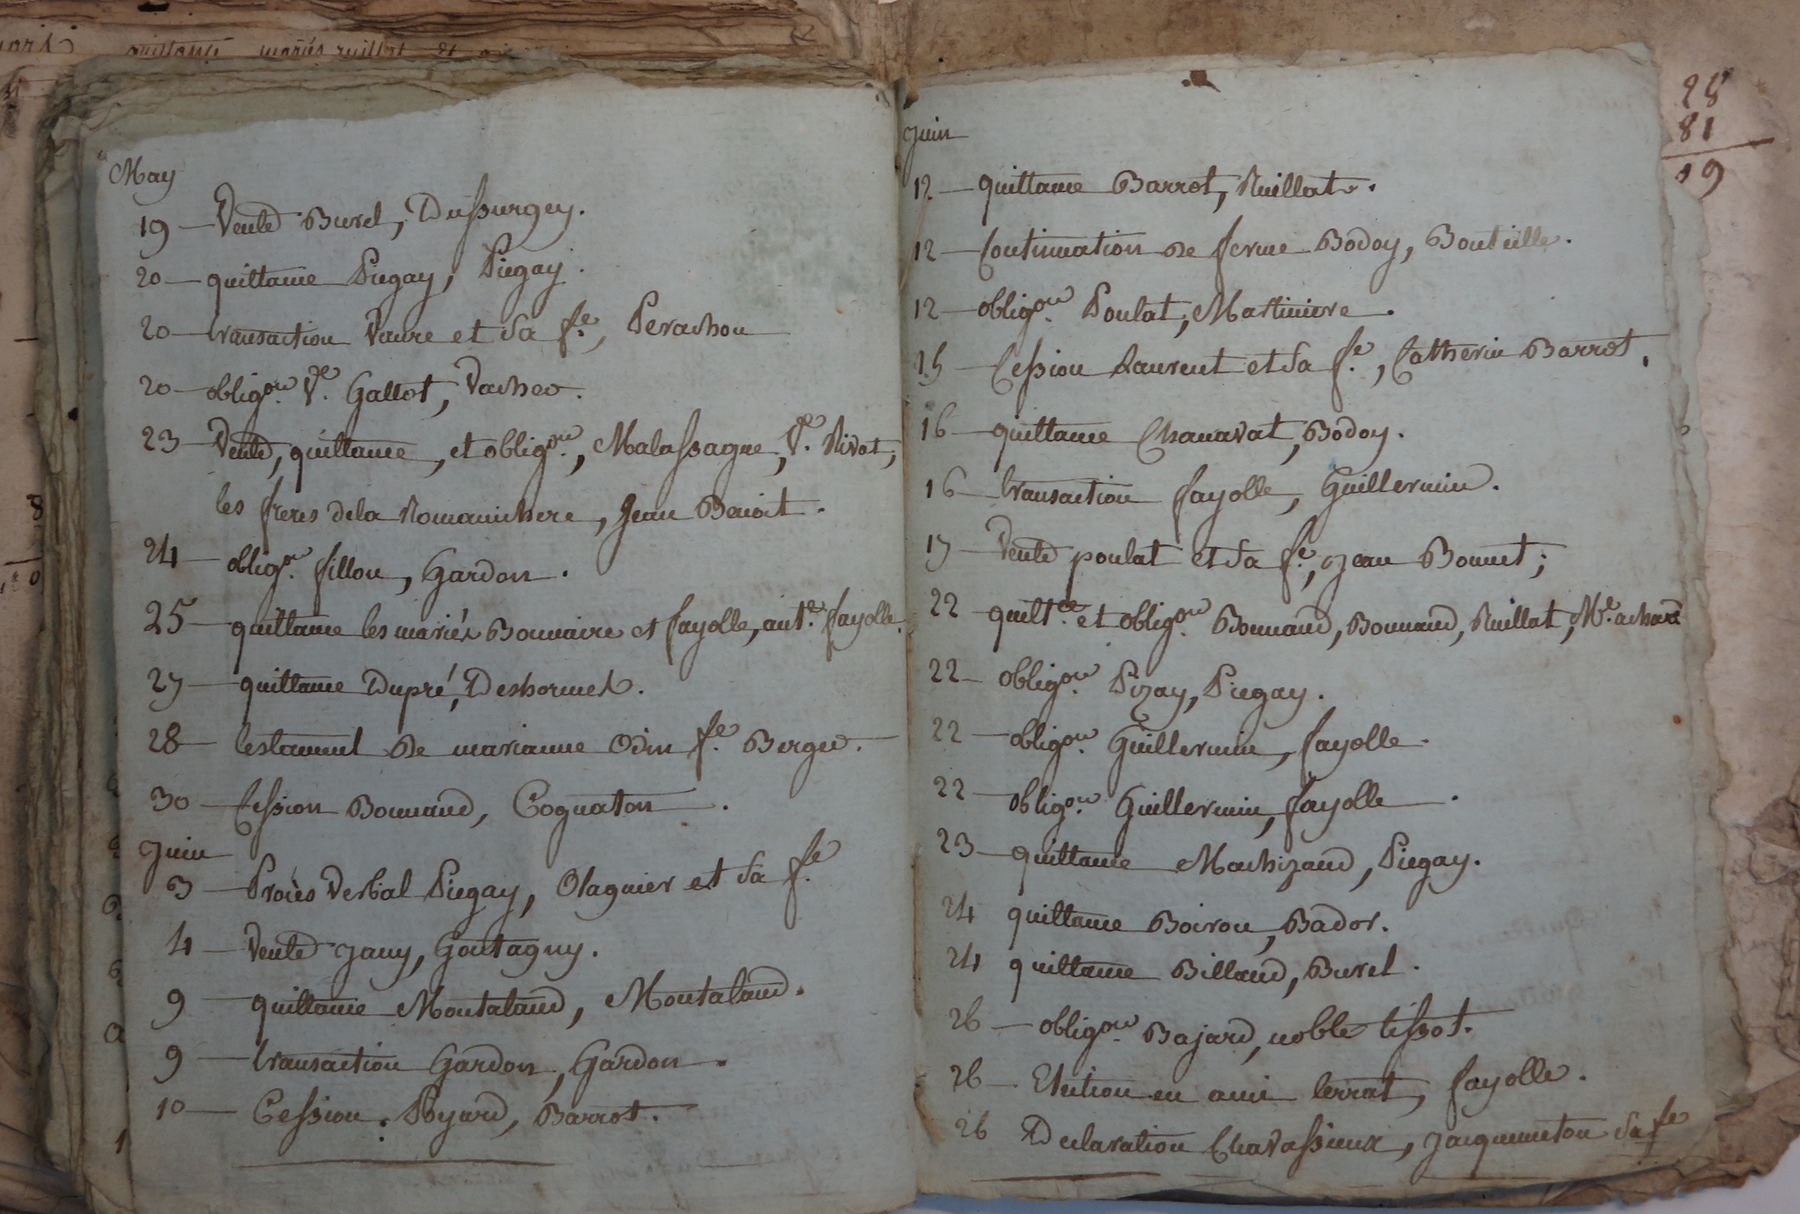 quittance mariés ruillat et
May
19 — Vente Burel, Dussurgey.
20 — quittance Piegay, Piegay.
20 — transaction Vaure et Sa fe, Perachon
20 — obligon Ve Gallot, Vacher.
23 — Vente, quittance, et obligon, Malassagne, Ve Rivot,
les freres dela Romanichere, Jean Benoit.
24 — obligon fillon, Gardon.
25 — quittance les mariés Bonnaire et fayolle, ante fayolle.
27 — quittance Dupré, Deshormet.
28 — testament De marianne Odin fe Berger.
30 — Cession Bonnand, Cognaton.
Juin
3 — Procès Verbal Piegay, Olagnier et Sa fe
4 — Vente Jany, Goutagny.
9 — quittance Montaland, Montaland.
9 — transaction Gardon, Gardon.
10 — Cession, Poyard, Barrot.
Juin
12 — quittance Barrot, Ruillat.
12 — Continuation De ferme Bodoy, Bouteille.
12 — obligon Poulat, Martiniere.
15 — Cession Laurent et Sa fe, Catherin Barrot.
16 — quittance Chanavat, Bodoy.
16 — transaction fayolle, Guillermin.
17 — Vente poulat et Sa fe, Jean Bonnet;
22 — quiltce et obligon Bonnand, Bonnand, Ruillat, Me achard
22 — obligon Pizay, Piegay.
22 — obligon Guillermin, fayolle.
22 — obligon Guillermin, fayolle.
23 — quittance Machizaud, Piegay.
24 quittance Boiron, Bador.
24 quittance Billand, Burel.
26 — obligon Bajard, noble tissot.
26 — Election en ami terrat, fayolle.
26 Declaration Chavassieux, Jacquemeton Sa fe
28
81
19